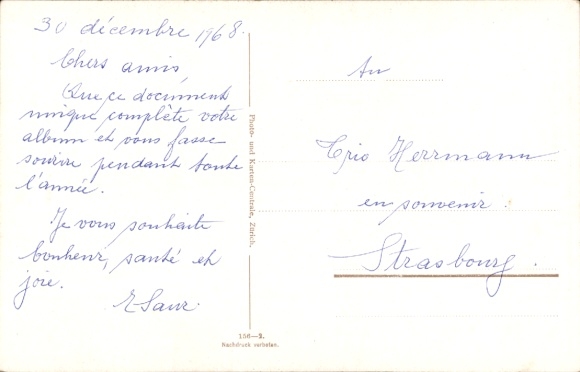 30 décembre 1968.
Chers amis,
Que ce document
unique complète votre
album et vous fasse
sourire pendant toute
l'année.
Je vous souhaite
bonheur, santé et
joie.
Au
Trio Herrmann
en souvenir :
Strasbourg.
Photo- und Karten-Centrale, Zürich.
156—9.
Nachdruck verboten.